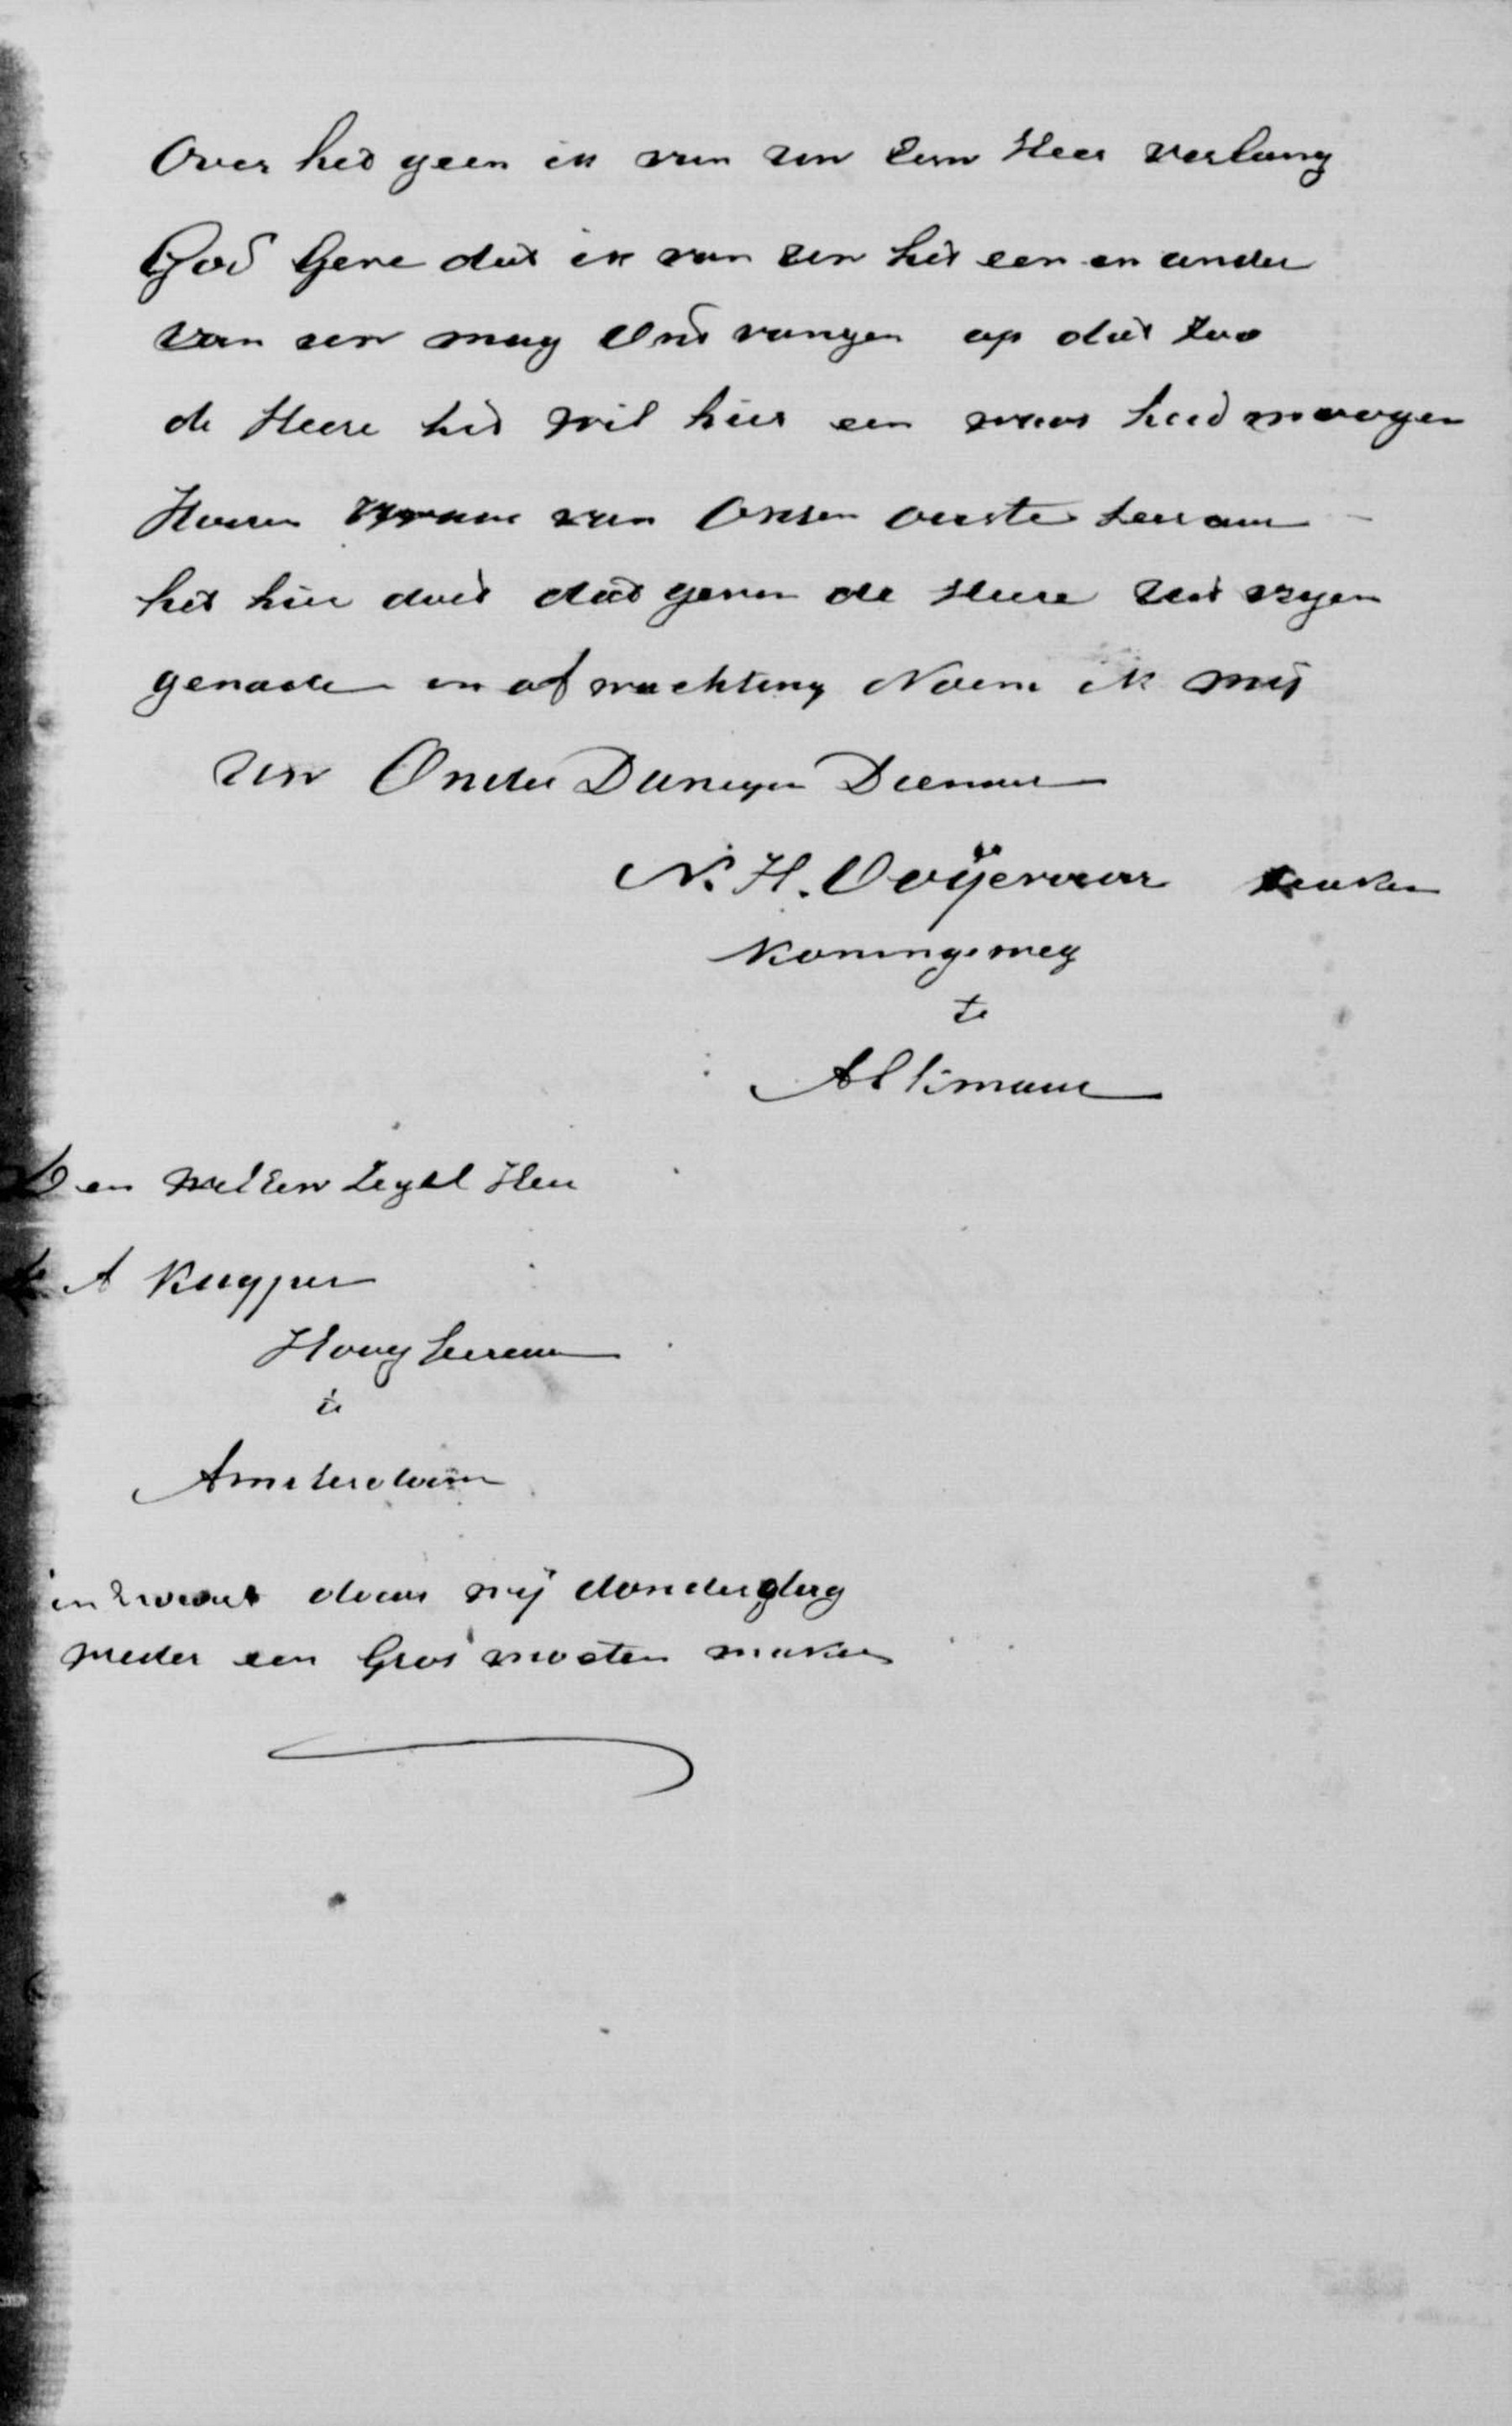 Over het geen ik van uw Eerw Heer verlang
God Geve dat ik van uw het een en ander
van uw mag Ont vangen op dat zoo
de Heere het wil hier een waar heid moogen
Hooren van Onsen eerste Leeraar
het hier doet dat geven de Heere uit vryen
genade in af wachting Noem ik mij
uw Onder Danigen Dienaar
N. H. Ooÿevaar
Koningsweg
te
Alkmaar
Den Wel Eerw Heer
A Kuyper
Hoog Leeraar
te
Amsterdam
daar wij donderdag
weder een moeten maken